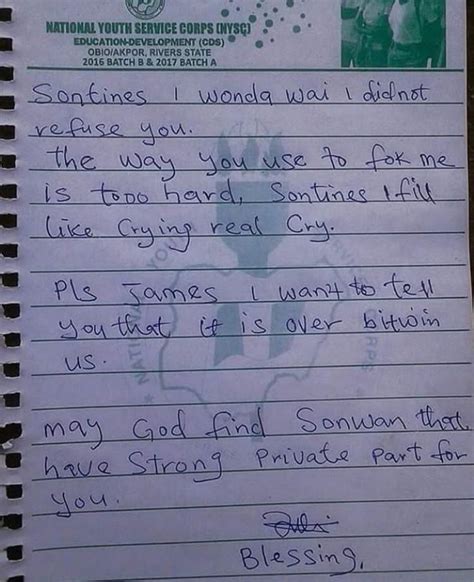 NATIONAL YOUTH SERVICE CORPS (NYSC)
EDUCATION-DEVELOPMENT (CDS)
OBIO/AKPOR, RIVERS STATE
2016 BATCH B & 2017 BATCH A
Sontines I wonda wai I did not
refuse you.
the way you use to fok me
is tooo hard, Sontines I fill
like Crying real Cry.
Pls James I want to tell
you that it is over bitwin
us.
may God find Sonwan that
have Strong Private Part for
you.
Blessing.